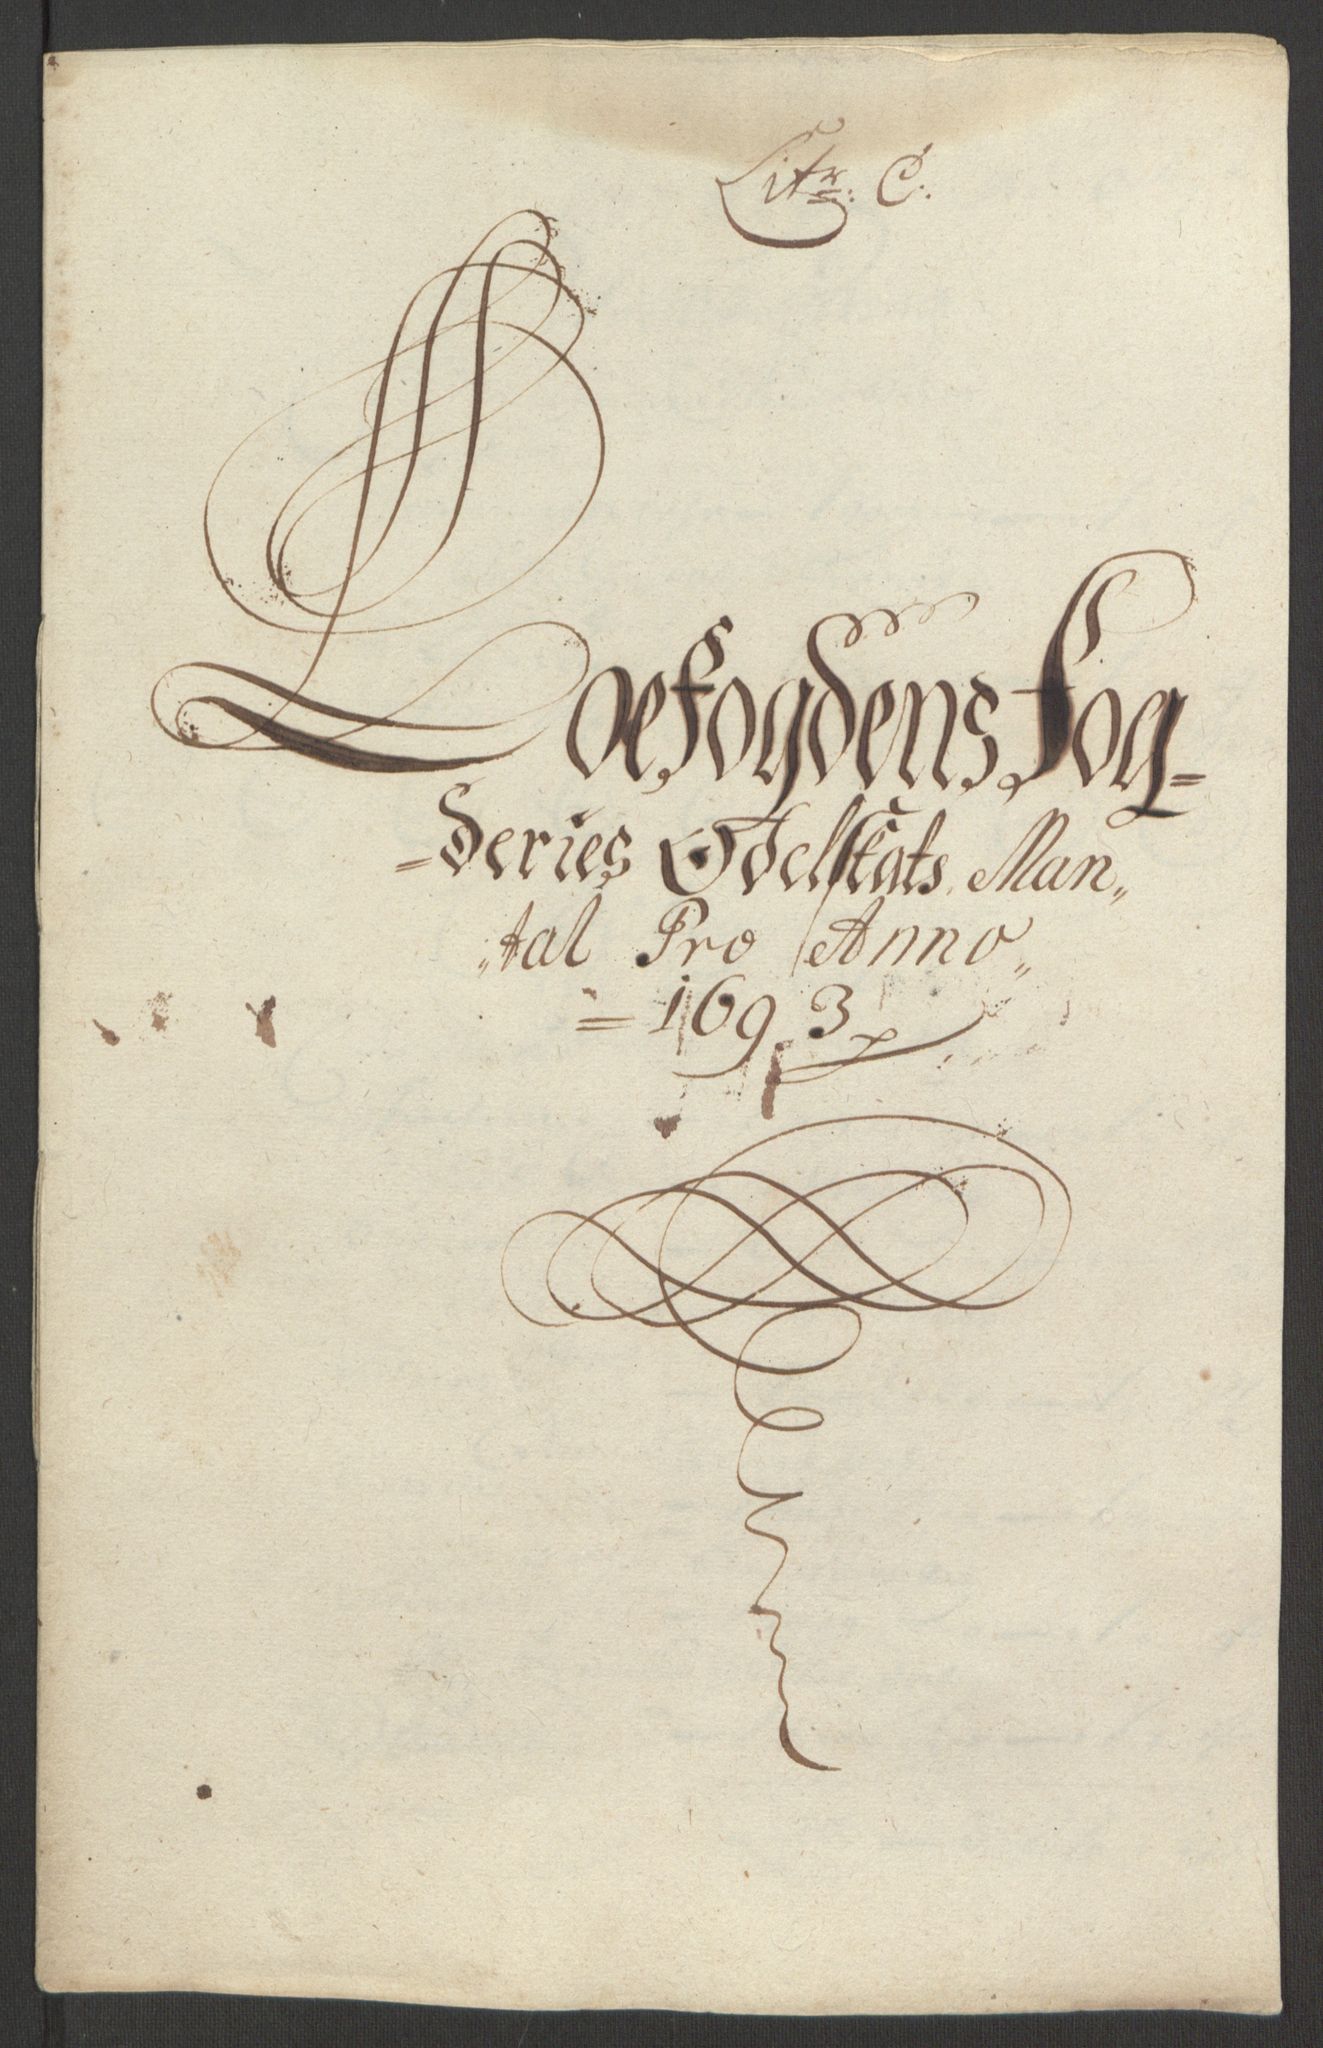 Litr: C.
Loefogdens Fog=
=deries Odelskats Man„
„tal Pro Anno„
= 1693